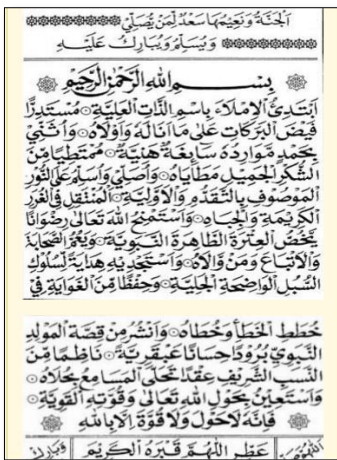 اَلْجَنَّةُ وَنَعِيْمُهَا سَعْدٌ لِمَنْ يُصَلِّيْ
وَيُسَلِّمُ وَيُبَارِكُ عَلَيْهِ
بِسْمِ اللهِ الرَّحْمٰنِ الرَّحِيْمِ
اَبْتَدِئُ الْاِمْلَاءَ بِاسْمِ الذَّاتِ الْعَلِيَّةِ۞ مُسْتَدِرًّا
فَيْضَ الْبَرَكَاتِ عَلٰى مَا اَنَالَهُ وَاَوْلَاهُ۞ وَاُثَنِّيْ
بِحَمْدٍ مَوَارِدُهُ سَائِغَةٌ هَنِيَّةٌ۞ مُمْتَطِيًا مِنَ
الشُّكْرِ الْجَمِيْلِ مَطَايَاهُ۞ وَاُصَلِّيْ وَاُسَلِّمُ عَلَى النُّوْرِ
الْمَوْصُوْفِ بِالتَّقَدُّمِ وَالْاَوَّلِيَّةِ۞ الْمُنْتَقِلِ فِي الْغُرَرِ
الْكَرِيْمَةِ وَالْجِبَاهِ۞ وَاَسْتَمْنِحُ اللهَ تَعَالٰى رِضْوَانًا
يَخُصُّ الْعِتْرَةَ الطَّاهِرَةَ النَّبَوِيَّةَ۞ وَيَعُمُّ الصَّحَابَةَ
وَالْاَتْبَاعَ وَمَنْ وَالَاهُ۞ وَاَسْتَجْدِيْهِ هِدَايَةً لِسُلُوْكِ
السُّبُلِ الْوَاضِحَةِ الْجَلِيَّةِ۞ وَحِفْظًا مِنَ الْغَوَايَةِ فِيْ
خُطَطِ الْخَطَأِ وَخُطَاهُ۞ وَاَنْشُرُ مِنْ قِصَّةِ الْمَوْلِدِ
النَّبَوِيِّ بُرُوْدًا حِسَانًا عَبْقَرِيَّةً۞ نَاظِمًا مِنَ
النَّسَبِ الشَّرِيْفِ عِقْدًا تَحَلَّى الْمَسَامِعُ بِحُلَاهُ۞
وَاَسْتَعِيْنُ بِحَوْلِ اللهِ تَعَالٰى وَقُوَّتِهِ الْقَوِيَّةِ۞
فَاِنَّهُ لَاحَوْلَ وَلَا قُوَّةَ اِلَّا بِاللهِ
عَطِّرِ اللّٰهُمَّ قَبْرَهُ الْكَرِيْمَ